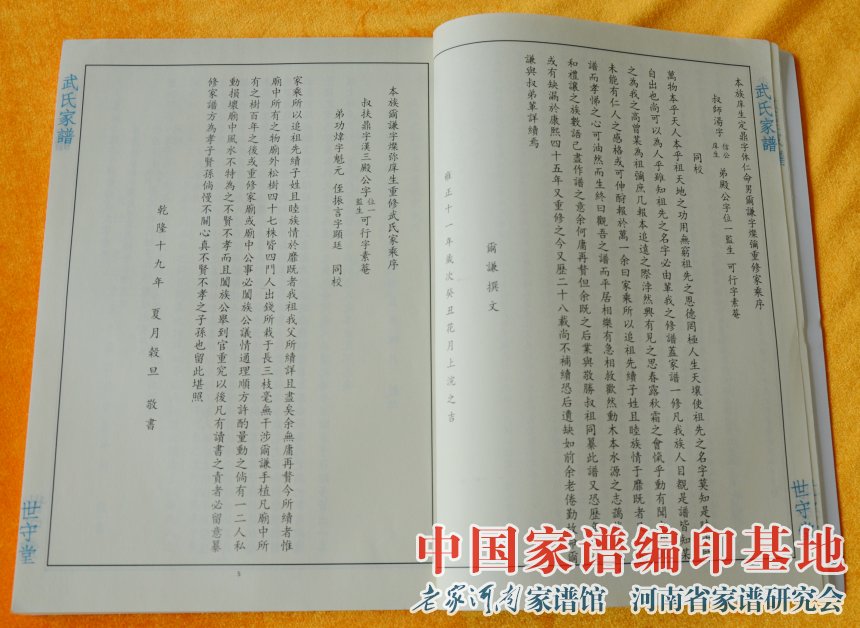 武氏家譜
本族庠生定鼎字休仁命男爾謙字燦彌重修家乘序
叔師湯字 信公 庠生 弟殿公字位一監生 可行字素菴
同校
萬物本乎天人本乎祖天地之功用無窮祖先之恩德罔極人生天壤使祖先之名字莫知是
自出也尚可以為人乎雖知祖先之名字必由葦我之修譜蓋家譜一修凡我族人目觀是譜皆知某
之為我之高曾某為祖彌庶几報本追遠之際悖然興有見之思春露秋霜之會愾乎動有聞
未能有仁人之感格或可伸酧報於萬一余曰家乘所以追祖先續子姓且睦族情于靡既者
譜而孝悌之心可油然而生終曰觀吾之譜而平居相樂有急相救歡然動木本水源之志藹
和禮讓之族數語已盡作譜之意余何庸再贅但余既之后業與敬勝叔祖同纂此譜又恐歷
或有缺漏於康熙四十五年又重修之今又歷二十八載尚不補續恐后遺缺如前余老倦勤故
謙與叔弟輩詳續焉
爾謙撰文
雍正十一年歲次癸丑花月上浣之吉
世守堂
武氏家譜
本族爾謙字燦弥庠生重修武氏家乘序
叔扶鼎字漢三殿公字位一監生可行字素菴
弟功煒字魁元 侄振言字顯廷 同校
家乘所以追祖先續子姓且睦族情於靡既者我祖我父所續詳且盡矣余無庸再贅今所續者惟
廟中所有之物廟外松樹四十七株皆四門人出錢所栽于長三枝毫無干涉爾謙手植凡廟中所
有之樹百年之後或重修家廟或廟中公事必闔族公議情通理順方許酌量動之倘有一二人私
動損壞廟中風水不特為之不賢不孝而且闔族公舉到官重究以後凡有讀書之責者必留意纂
修家譜方為孝子賢孫倘慢不關心真不賢不孝之子孫也留此堪照
乾隆十九年 夏月穀旦 敬書
世守堂
5
中国家谱编印基地
老家河南家谱馆 河南省家谱研究会